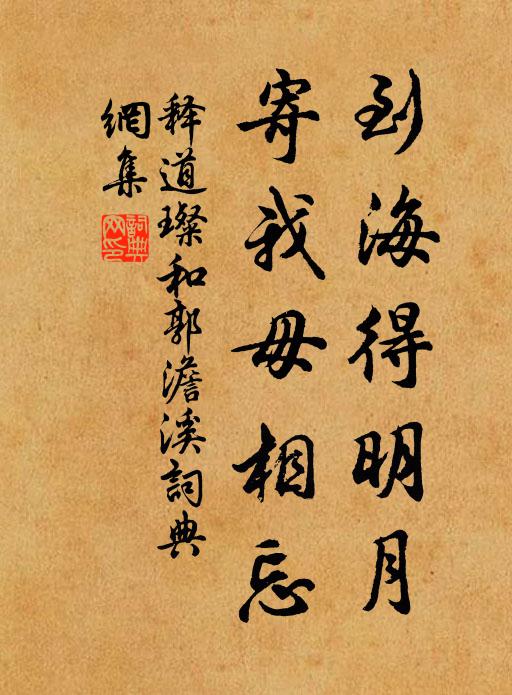 到海得明月
寄我毋相忘
释道璨和郭澹溪詞典
網集
詞典
网印